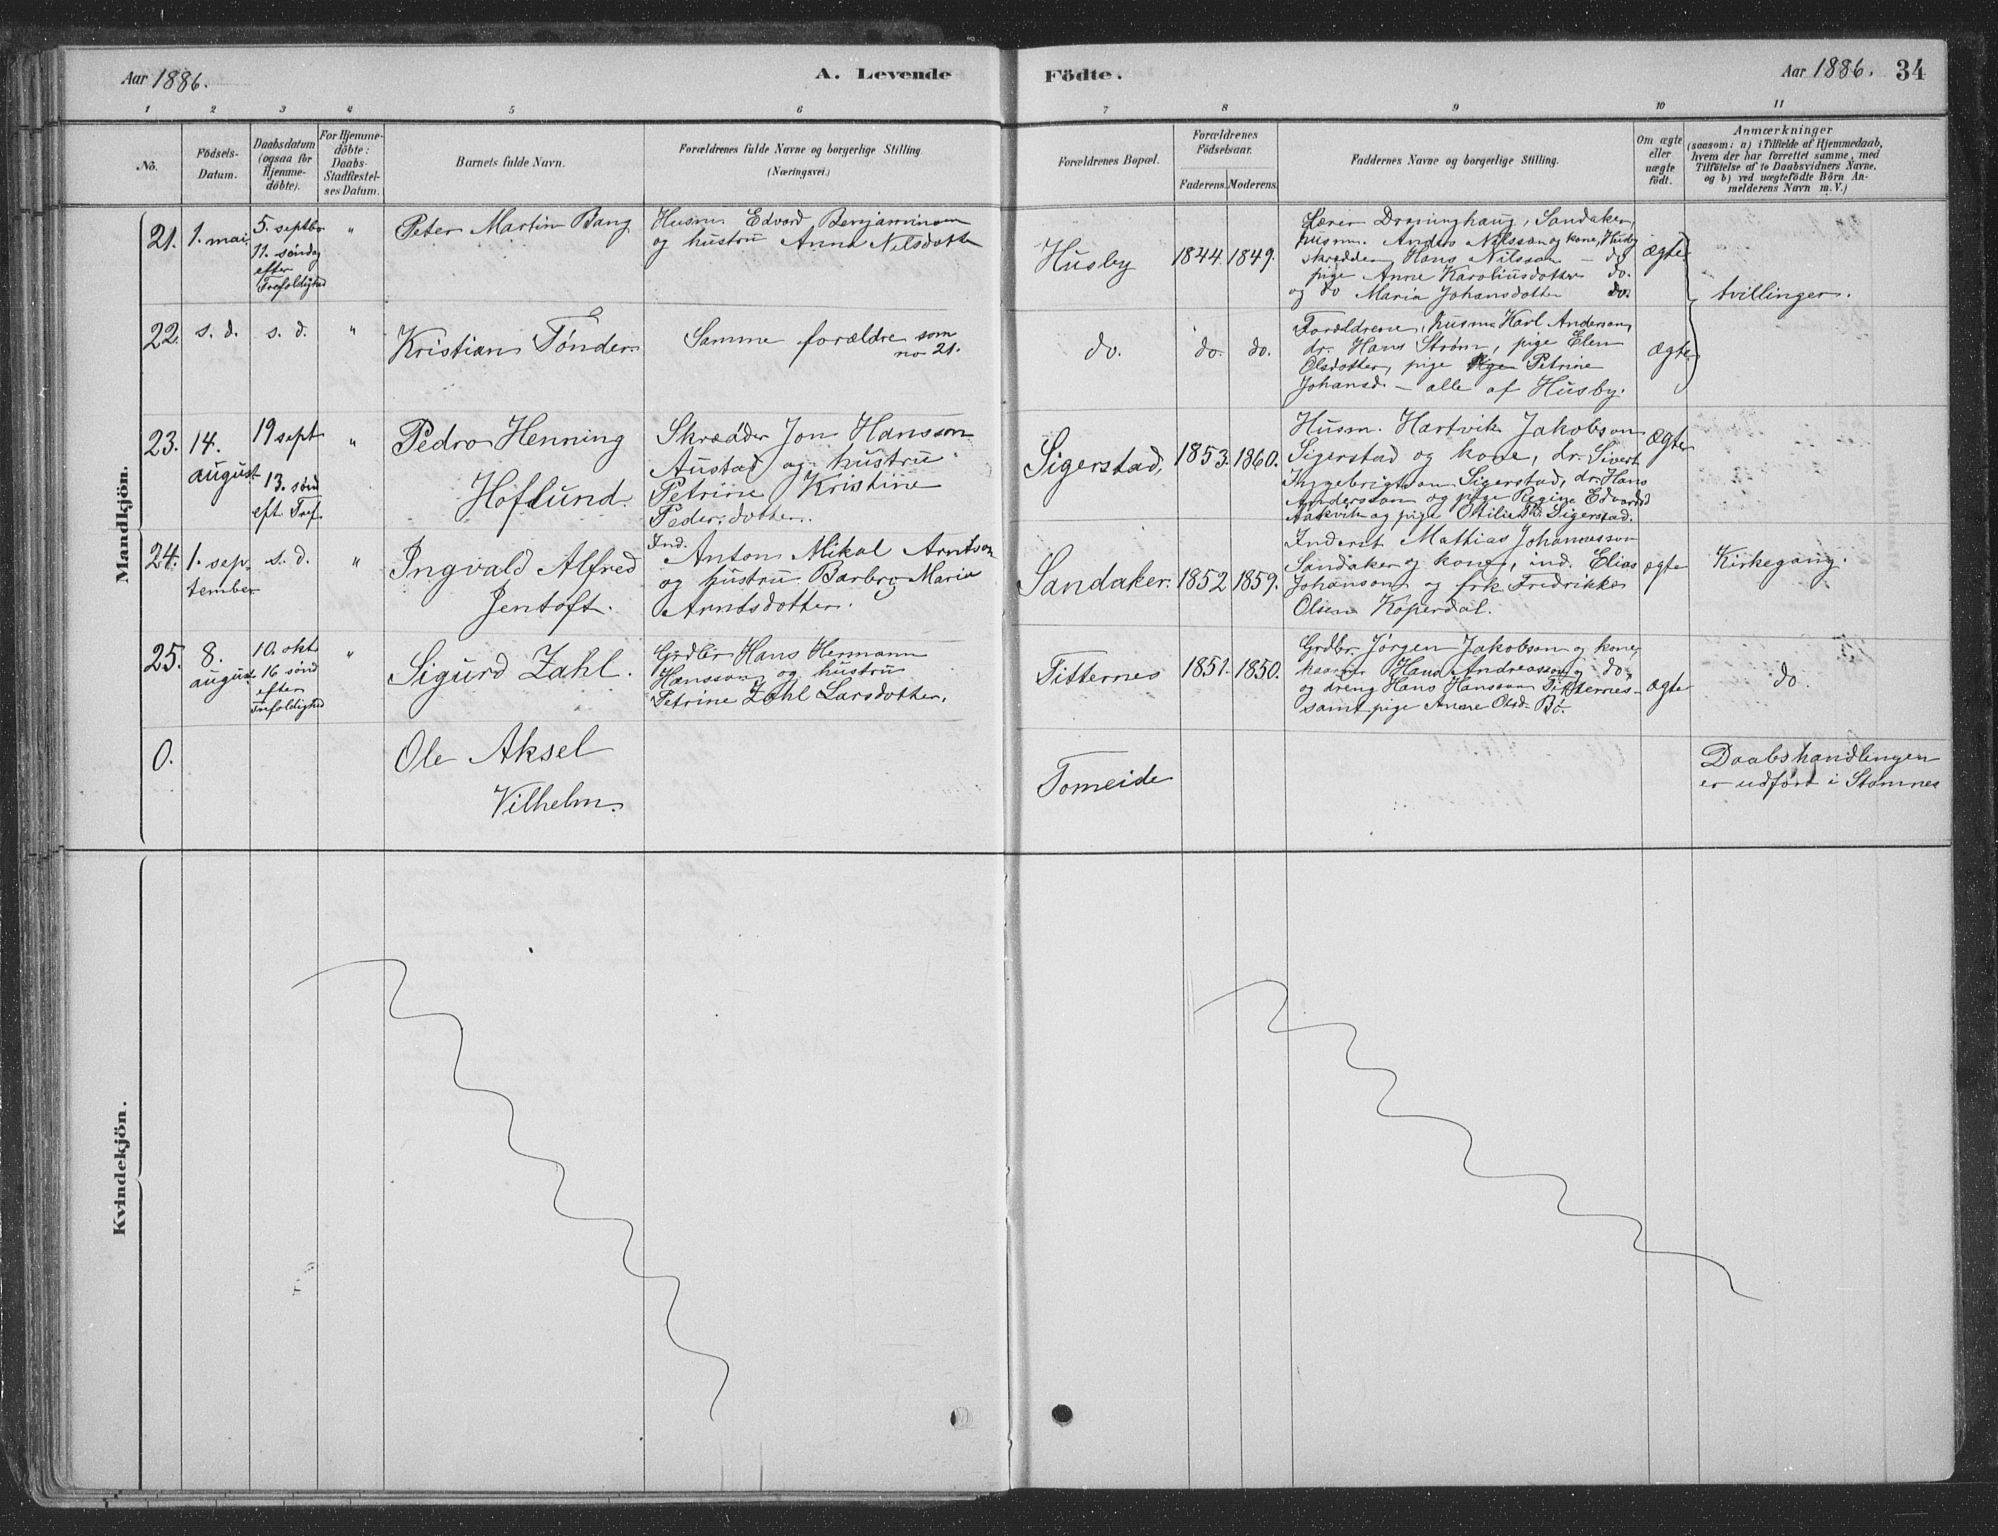 Aar 1886.
A. Levende
Födte.
Aar 1886. 34
1 2 3 4 5 6 7 8 9 10 11
No.
Födsels-
Datum.
Daabsdatum
(ogsaa for
Hjemme-
döbte).
For Hjemme-
döbte:
Daabs-
Stadfæstel-
ses Datum.
Barnets fulde Navn.
Forældrenes fulde Navne og borgerlige Stilling.
(Næringsvei.)
Forældrenes Bopæl.
Forældrenes
Födselsaar.
Faderens. Moderens.
Faddernes Navne og borgerlige Stilling.
Om ægte
eller
uægte
födt.
Anmærkninger
(saasom: a) i Tilfælde af Hjemmedaab,
hvem der har forrettet samme, med
Tilföielse af to Daabsvidners Navne.
og b) ved uægtefödte Börn An-
melderens Navn m. V.)
Mandkjön.
21. 1. mai
5. septbr
11. søndag
efter
Trefoldighed
"
Peter Martin Bang
Husm. Edvard Benjaminsen
og hustru Anna Nilsdotter
Husby
1844. 1849.
Lærer Dronninghaug, Sandaker,
husm. Anders Nilsson og kone, Husby
skrædder Hans Nilsson - do
pige Anne Karoliusdotter do.
og do Maria Johansdotter do.
ægte
tvillinger.
22. s. d. s. d. "
Kristian Tønder
Samme forældre som
no 21.
do. do. do.
Forældrene, husm. Karl Anderson,
dr. Hans Strøm, pige Elen
Olsdotter, pige Petrine
Johansd. - alle af Husby.
ægte
23. 14.
august
19 sept
13. sønd
eft Tref.
"
Pedro Henning
Hoflund.
Skrædder Jon Hansson
Austad og hustru
Petrine Kristine
Pedersdotter.
Sigerstad,
1853. 1860.
Husm. Hartvik Jakobson
Sigerstad og kone, dr. Sivert
Ingebrigtson Sigerstad, dr. Hans
Anderson og pige Regine Edvardsd
Aakvik og pige Otilie Sigerstad.
ægte
24. 1. sep-
tember
s. d. "
Ingvald Alfred
Jentoft.
Ind. Anton Mikal Arntson
og hustru Barbro Maria
Arntsdotter.
Sandaker.
1852 1859.
Inderst Mathias Johannesson
Sandaker og kone, ind. Elias
Johanson og frk Fredrikke
Olsen Koperdal.
ægte
Kirkegang.
25. 8.
august
10. okt.
16 sønd
efter
Trefoldighed
"
Sigurd Zahl.
Grdbr Hans Hermann
Hansson og hustru
Petrine Zahl Larsdotter.
Titternes
1851. 1850.
Grdbr. Jørgen Jakobson og kone,
kaarm. Hans Andreasson do
og dreng Hans Hansson Titternes
samt pige Anne Olsd. Bø.
ægte
do.
0.
Ole Aksel
Vilhelm.
Tomeide
Daabshandlingen
er udført i Stamnes
Kvindekjön.